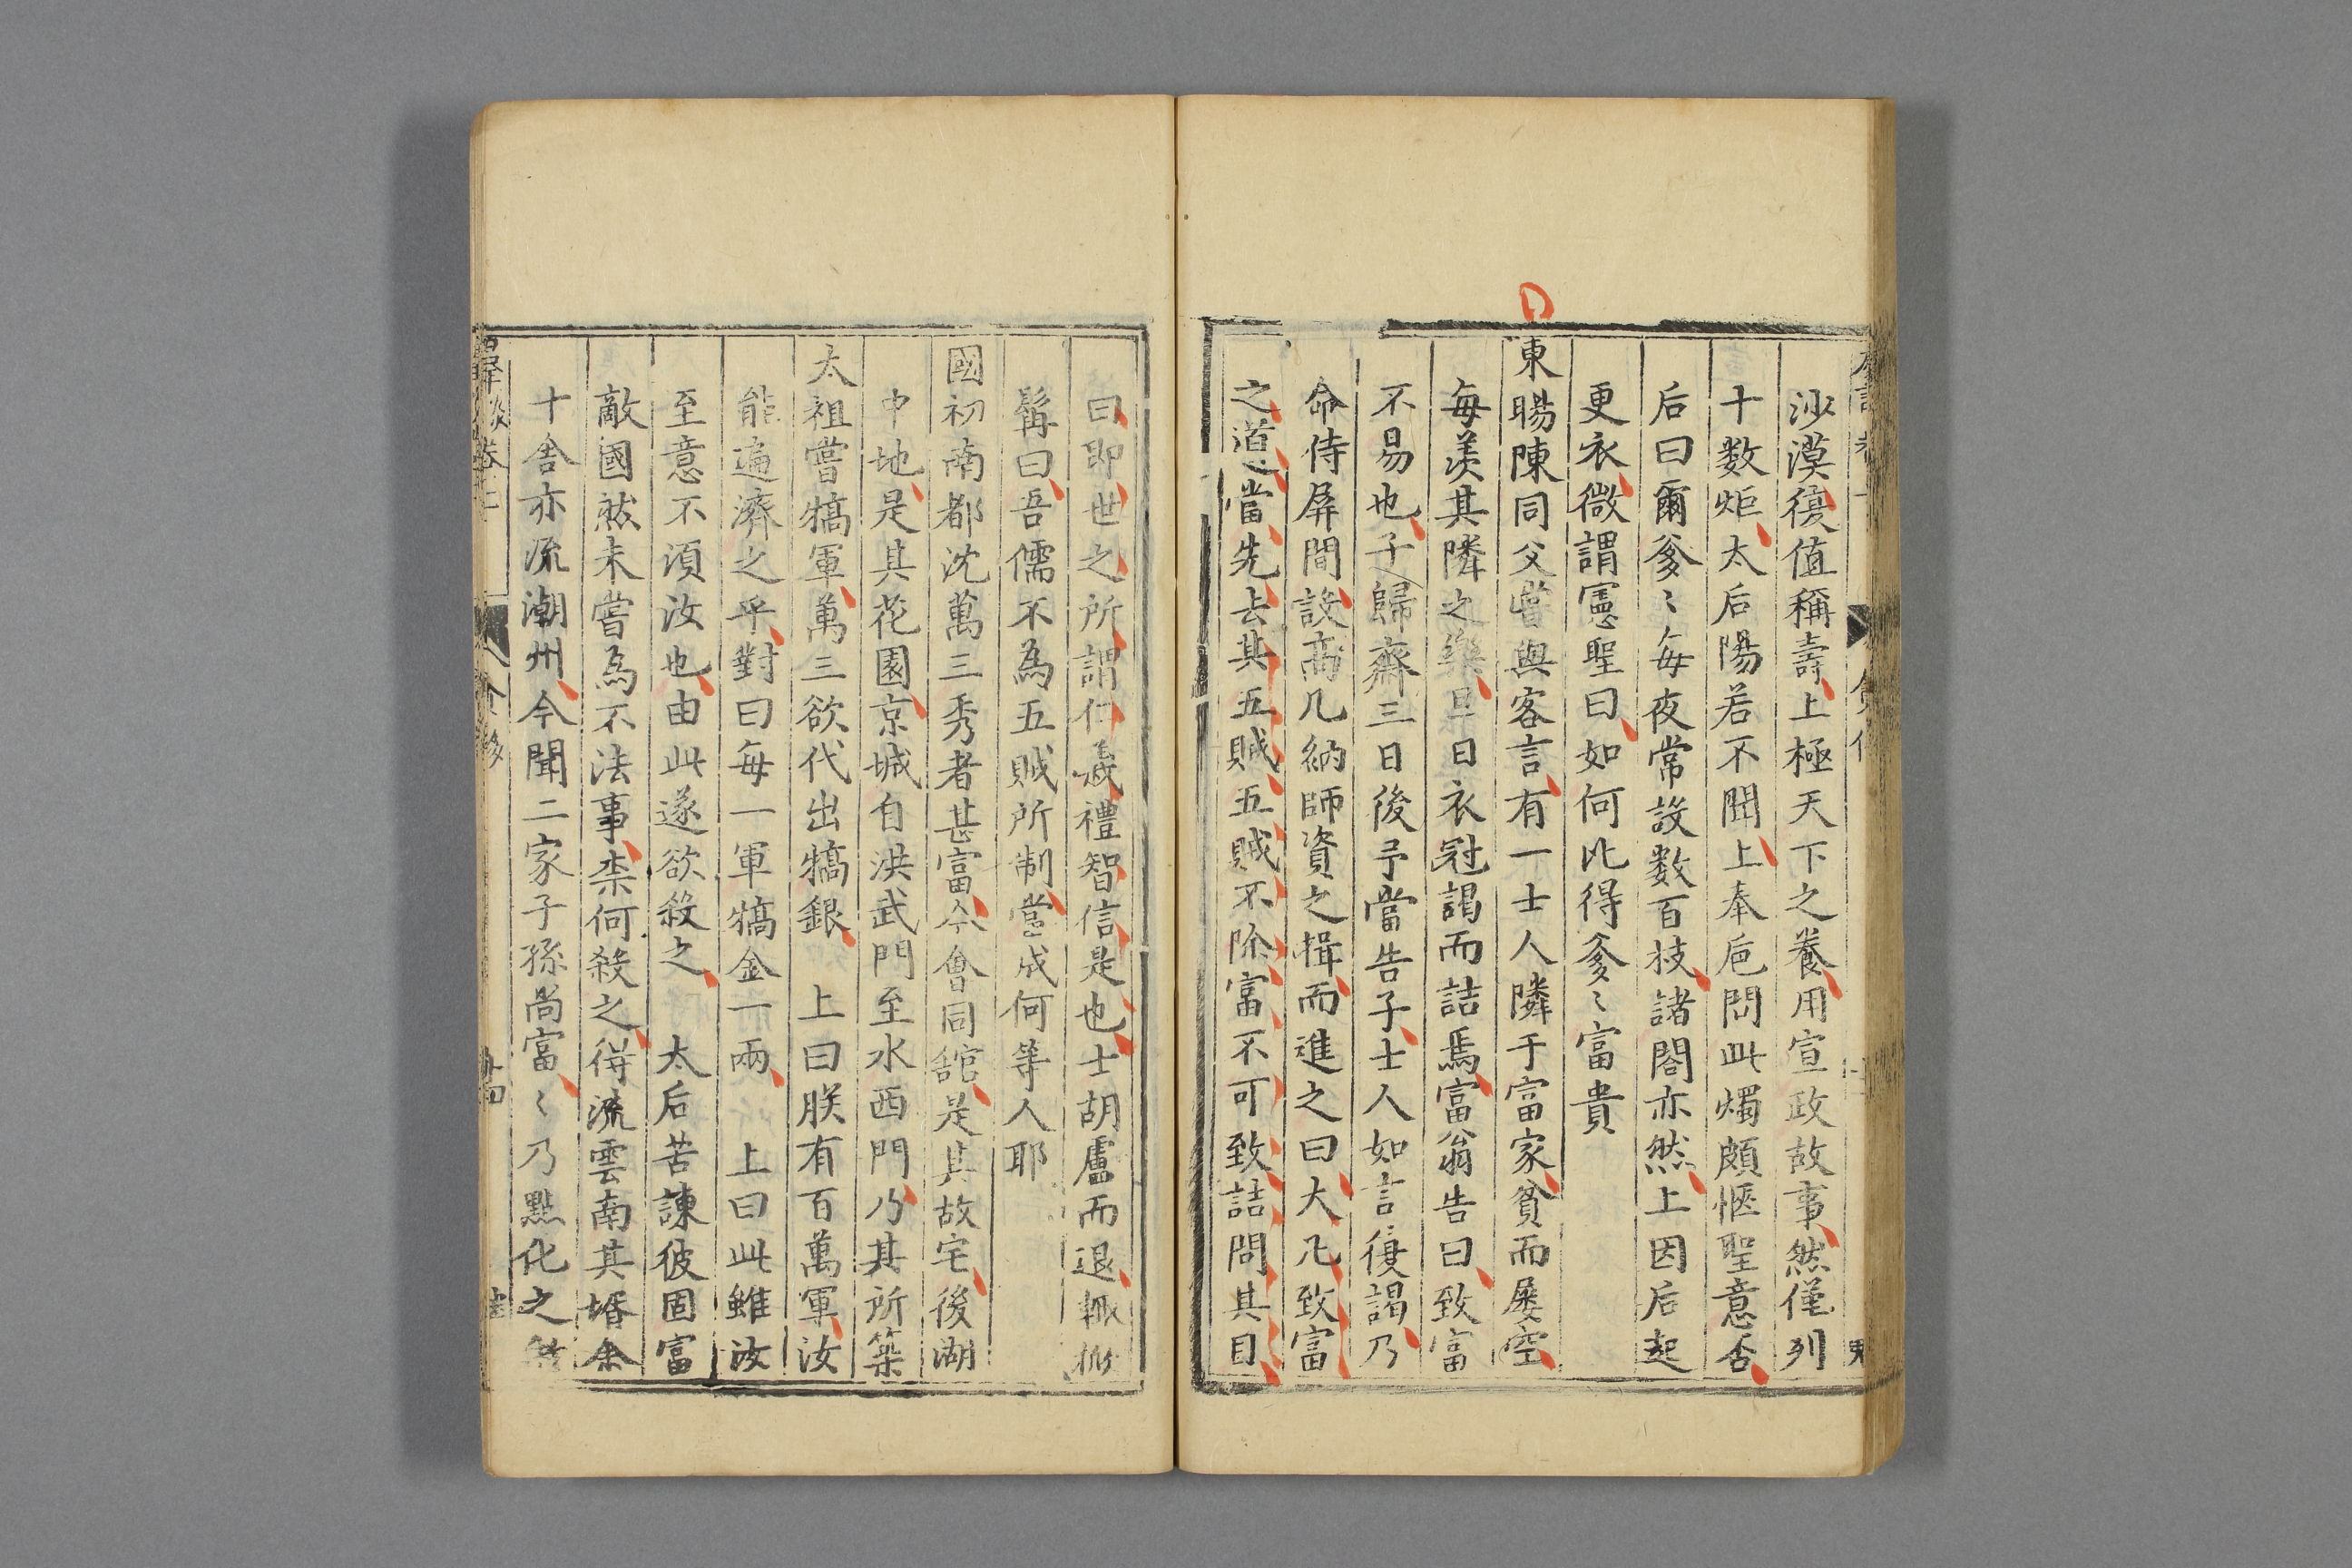 沙漠復值稱壽上極天下之養用宣政故事然僅列
十数炬太后陽若不聞上奉巵問此燭頗愜聖意否
后曰爾爹〻每夜常設数百枝諸閣亦然上因后起
更衣微謂憲聖曰如何比得爹〻富貴
東暘陳同父嘗與客言有一士人隣于富家貧而屡空
每羡其隣之樂旦日衣冠謁而詰焉富翁告曰致富
不易也子歸齋三日後予當告子士人如言復謁乃
命侍屏間設高几納師資之揖而進之曰大凡致富
之道當先去其五賊五賊不除富不可致詰問其目
曰即世之所謂仁義禮智信是也士胡盧而退輙㧑
髯曰吾儒不為五賊所制當成何等人耶
國初南都沈萬三秀者甚富今會同舘是其故宅後湖
中地是其花園京城自洪武門至水西門乃其所築
太祖嘗犒軍萬三欲代出犒銀 上曰朕有百萬軍汝
能遍濟之乎對曰每一軍犒金一兩 上曰此雖汝
至意不須汝也由此遂欲殺之 太后苦諫彼固富
敵國然未嘗為不法事柰何殺之得流雲南其壻余
十舎亦流潮州今聞二家子孫尚富〻乃點化之